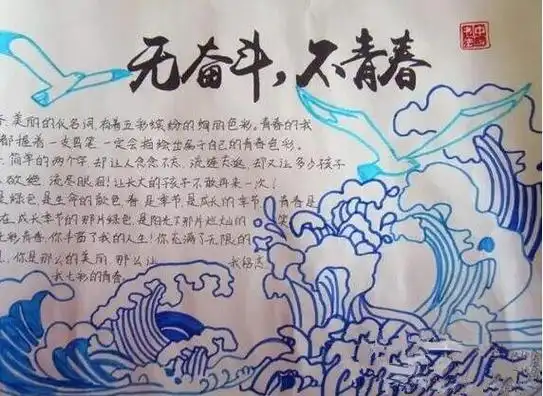 无奋斗，不青春
美丽的代名词，有着五彩缤纷的绚丽色彩。青春的我
都握着一支画笔，一定会描绘出属于自己的青春色彩。
简单的两个字，却让人念念不忘，流连忘返，却又让多少孩子
欲绝，流尽眼泪！让长大的孩子不敢再来一次！
绿色是生命的颜色，春是季节，是成长的季节，青春是
在成长季节的那片绿色，是阳光下那片灿烂的 笑
七彩青春，你丰富了我的人生！你充满了无限的
你是那么的美丽，那么让 我留恋
我七彩的青春